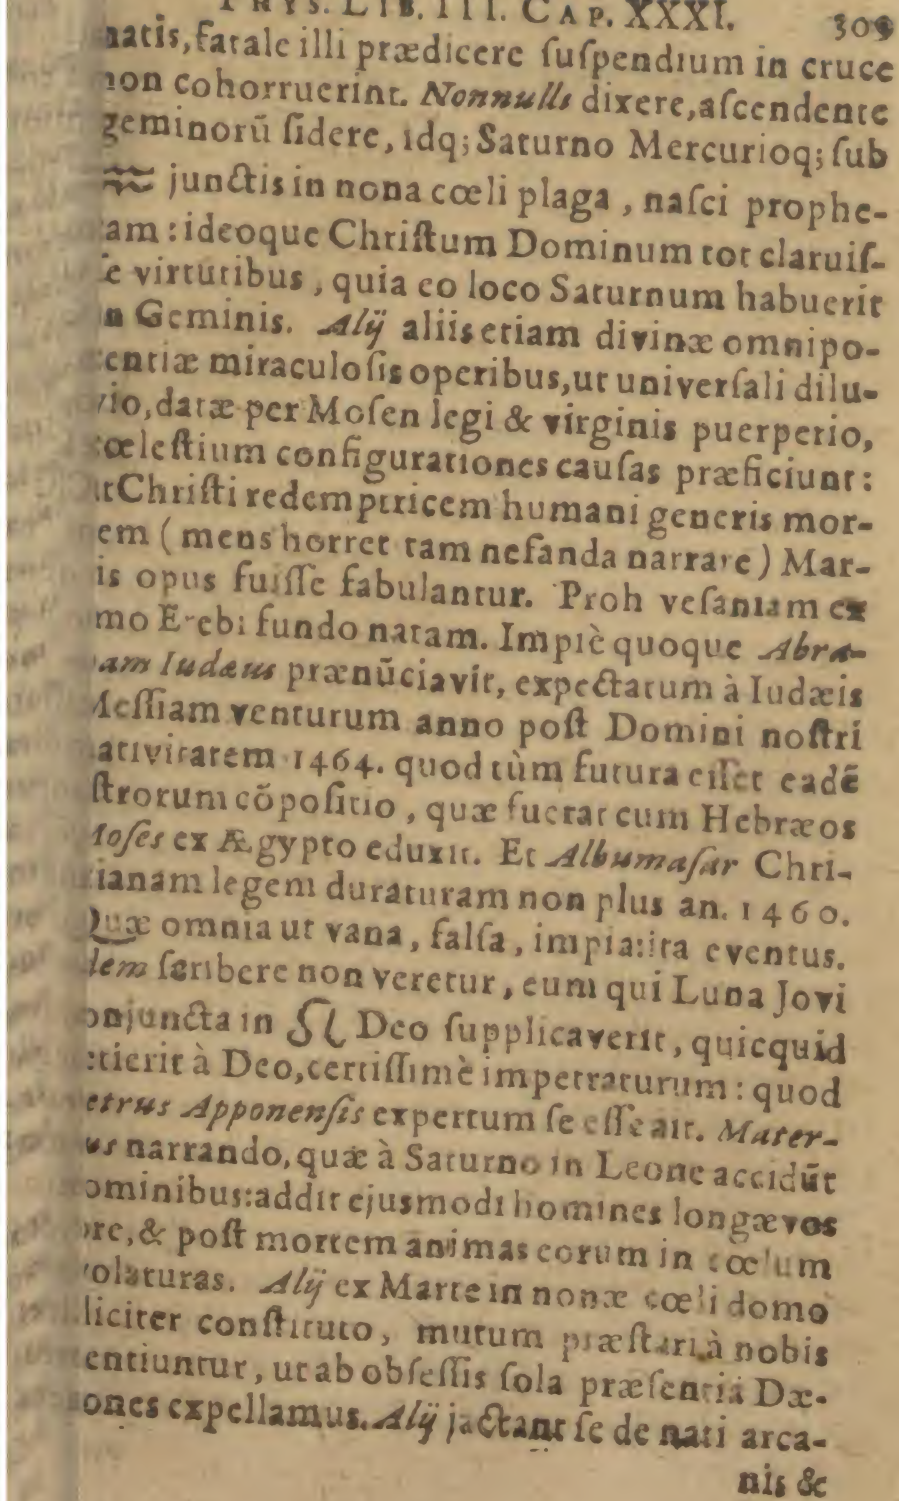 PHYS. LIB. III. CAP. XXXI. 309
natis, fatale illi prædicere ſuſpendium in cruce
non cohorruerint. Nonnulli dixere, aſcendente
geminorū ſidere, idq; Saturno Mercurioq; ſub
♒ junctis in nona cœli plaga, naſci prophe-
tam: ideoque Chriſtum Dominum tot claruiſ-
ſe virtutibus, quia eo loco Saturnum habuerit
in Geminis. Alij aliis etiam divinæ omnipo-
tentiæ miraculoſis operibus, ut univerſali dilu-
vio, datæ per Moſen legi & virginis puerperio,
cœleſtium configurationes cauſas præficiunt:
ut Chriſti redemptricem humani generis mor-
em (mens horret tam nefanda narrare) Mar-
is opus fuiſſe fabulantur. Proh veſaniam ex
mo Erebi fundo natam. Impiè quoque Abra-
am Iudæus prænūciavit, expectatum à Iudæis
Meſſiam venturum anno poſt Domini noſtri
nativitatem 1464. quod tùm futura eſſet eadē
ſtrorum cōpoſitio, quæ fuerat cum Hebræos
Moſes ex Ægypto eduxit. Et Albumaſar Chri-
tianam legem duraturam non plus an. 1460.
Quæ omnia ut vana, falſa, impia: ita eventus.
dem ſcribere non veretur, eum qui Luna Jovi
onjuncta in ♌ Deo ſupplicaverit, quicquid
etierit à Deo, certiſſimè impetraturum: quod
etrus Apponenſis expertum ſe eſſe ait. Mater-
us narrando, quæ à Saturno in Leone accidūt
ominibus: addit ejusmodi homines longævos
ore, & poſt mortem animas eorum in cœlum
volaturas. Alij ex Marte in nonæ cœli domo
liciter conſtituto, mutum præſtari à nobis
entiuntur, ut ab obſeſſis ſola præſentiâ Dæ-
ones expellamus. Alij jactant ſe de nati arca-
nis &